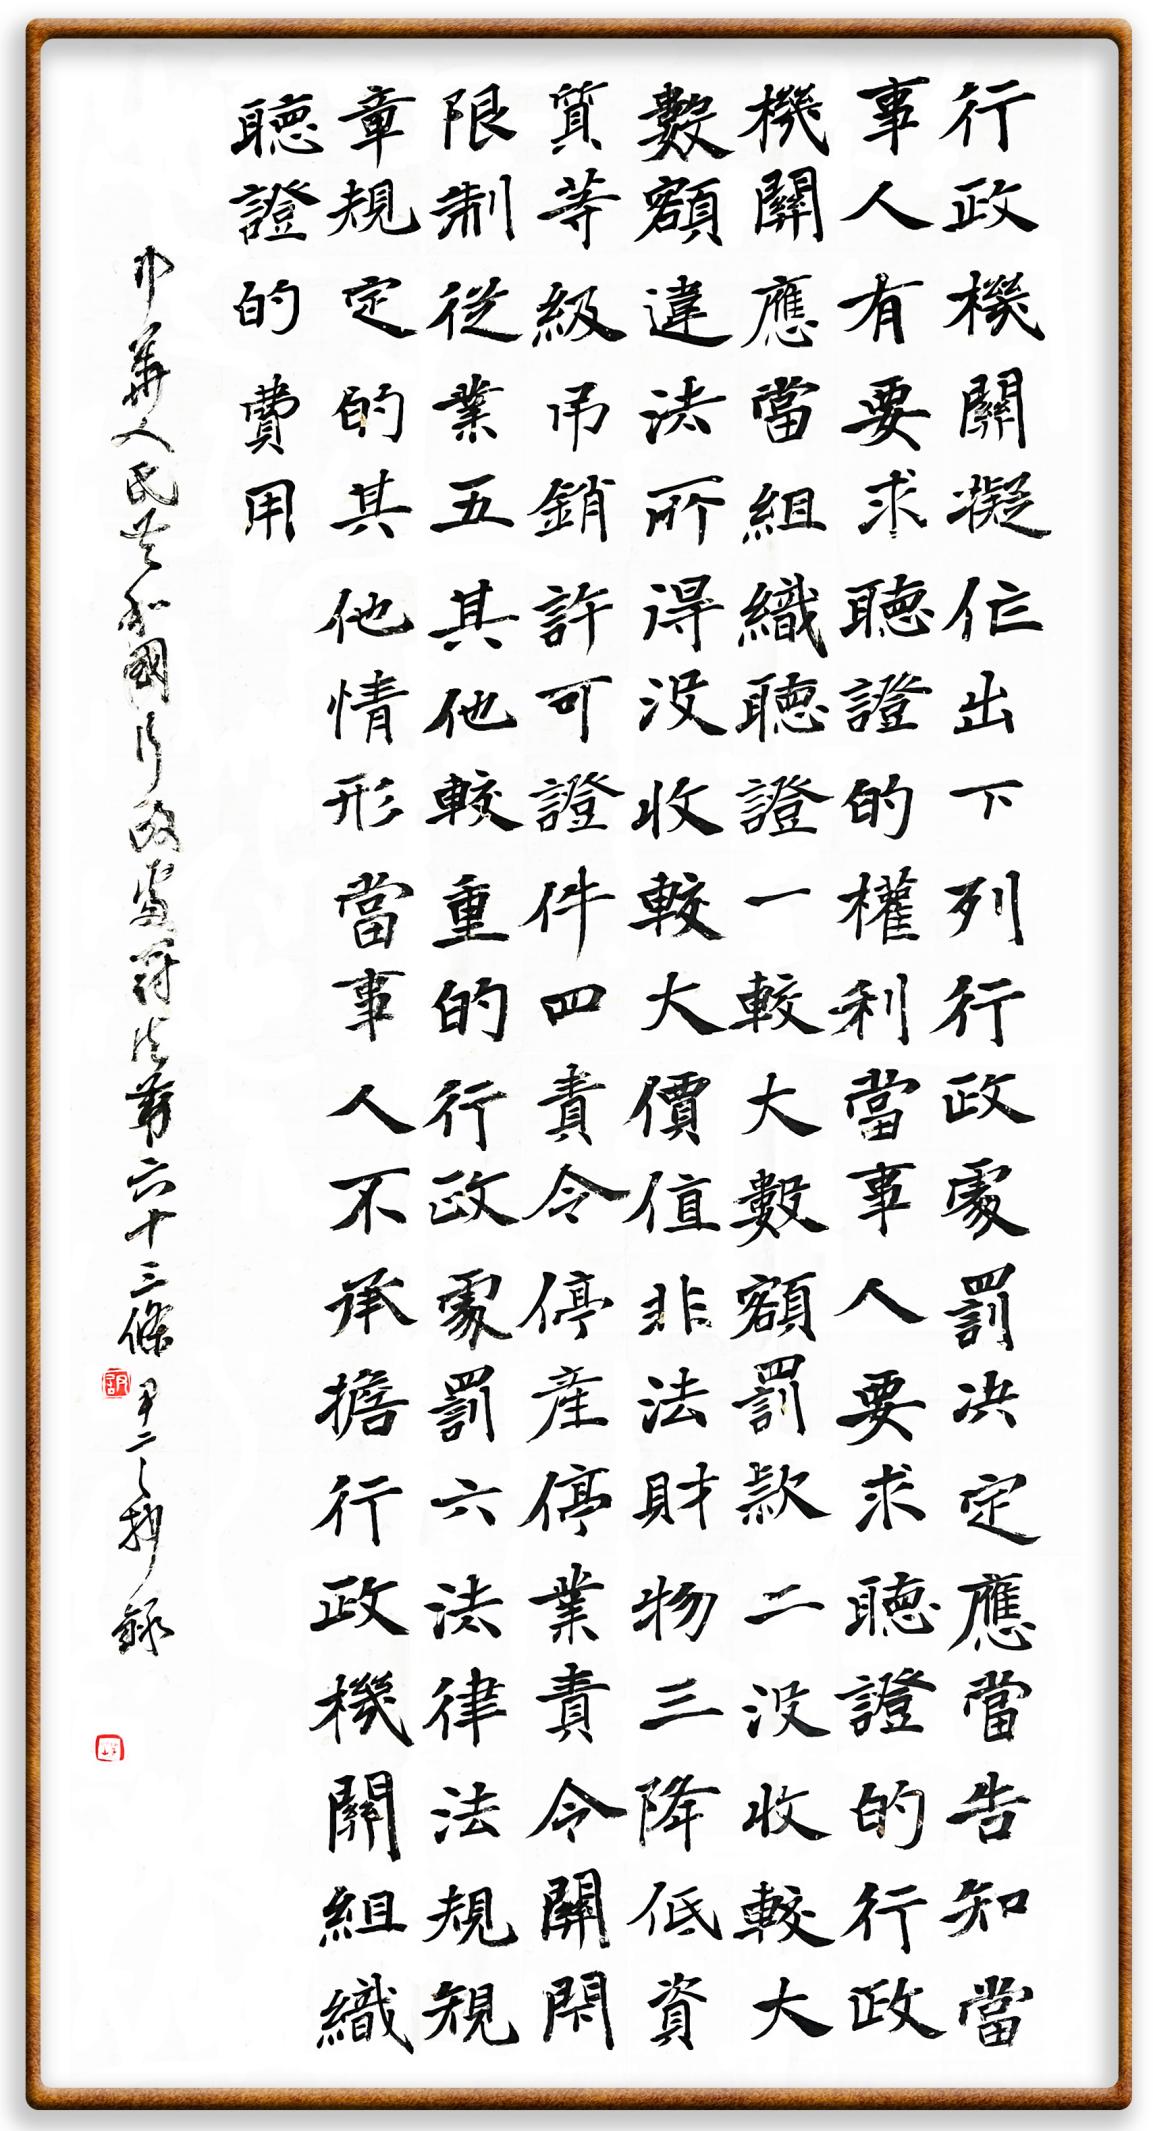 行政機關擬作出下列行政處罰決定應當告知當
事人有要求聽證的權利當事人要求聽證的行政
機關應當組織聽證一較大數額罰款二没收較大
數額違法所得没收較大價值非法財物三降低資
質等級吊銷許可證件四責令停産停業責令關閉
限制從業五其他較重的行政處罰六法律法規規
章規定的其他情形當事人不承擔行政機關組織
聽證的費用
中華人民共和國行政處罰法第六十三條 尹二之抄錄